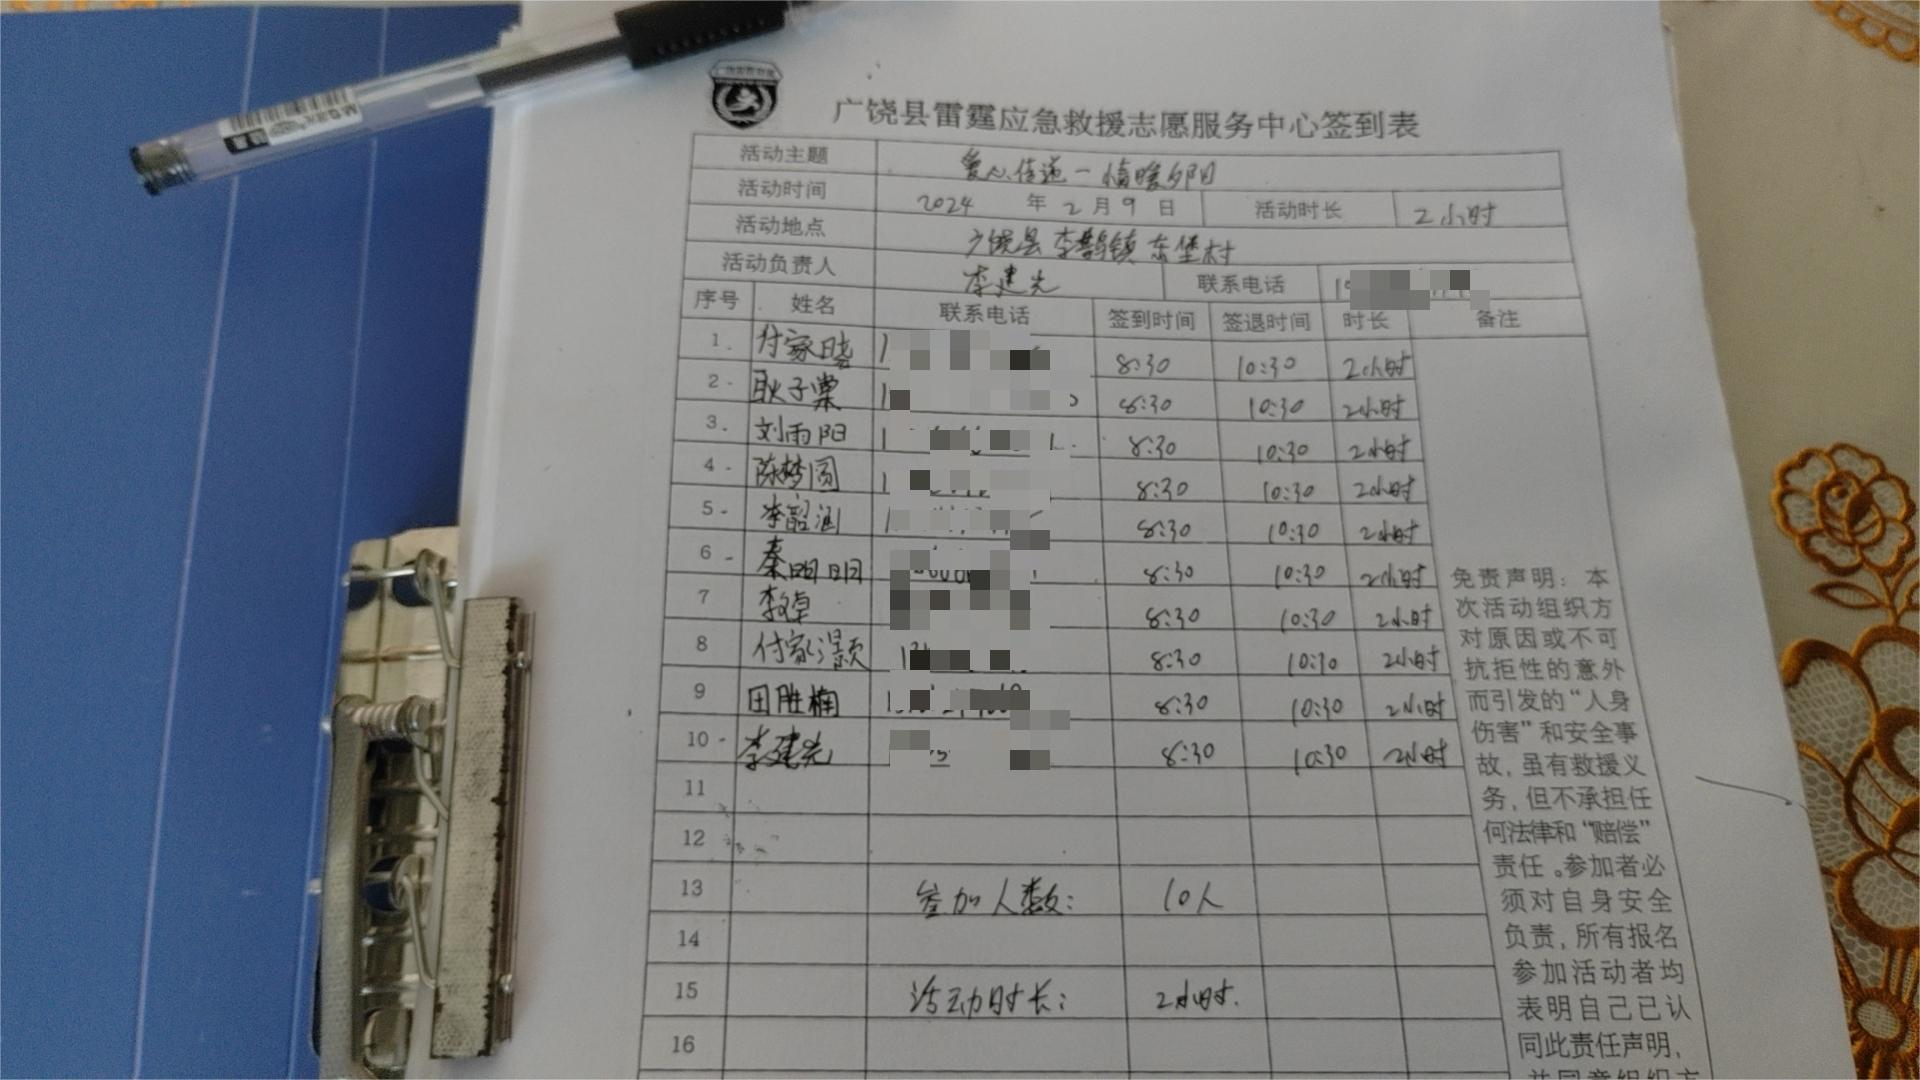 广饶县雷霆应急救援志愿服务中心签到表
活动主题 爱心传递一情暖夕阳
活动时间 2024 年 2 月 9 日 活动时长 2小时
活动地点 广饶县 李鹊镇 东堡村
活动负责人 李建先 联系电话 1
序号 姓名 联系电话 签到时间 签退时间 时长 备注
1. 付家晓 1 8:30 10:30 2小时
2. 耿子棠 1 8:30 10:30 2小时
3. 刘雨阳 1 8:30 10:30 2小时
4. 陈梦圆 1 8:30 10:30 2小时
5. 李韶涵 8:30 10:30 2小时
6. 秦明明 8:30 10:30 2小时
7 李卓 8:30 10:30 2小时
8 付家灏 8:30 10:30 2小时
9 田胜楠 8:30 10:30 2小时
10. 李建先 8:30 10:30 2小时
11
12
13 参加人数: 10人
14
15 活动时长: 2小时.
16
免责声明：本
次活动组织方
对原因或不可
抗拒性的意外
而引发的“人身
伤害”和安全事
故，虽有救援义
务，但不承担任
何法律和“赔偿”
责任。参加者必
须对自身安全
负责，所有报名
参加活动者均
表明自己已认
同此责任声明，
并同意组织方